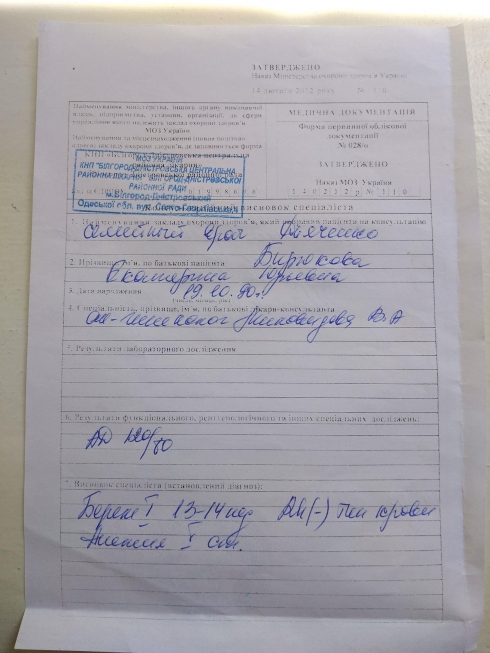 ЗАТВЕРДЖЕНО
Наказ Міністерства охорони здоров'я України
14 лютого 2012 року № 110
Найменування міністерства, іншого органу виконавчої
влади, підприємства, установи, організації, до сфери
управління якого належить заклад охорони здоров'я
МОЗ України
Найменування та місцезнаходження (повна поштова
адреса) закладу охорони здоров'я, де заповнюється форма
МЕДИЧНА ДОКУМЕНТАЦІЯ
Форма первинної облікової
документації
№ 028/о
ЗАТВЕРДЖЕНО
Наказ МОЗ України
14 02 2012 № 110
МОЗ УКРАЇНИ
КНП "БІЛГОРОД-ДНІСТРОВСЬКА ЦЕНТРАЛЬНА
РАЙОННА ЛІКАРНЯ" БІЛГОРОД-ДНІСТРОВСЬКОЇ
РАЙОННОЇ РАДИ
м. Білгород-Дністровський
висновок спеціаліста
1. Найменування закладу охорони здоров'я, який направив пацієнта на консультацію
Семейный врач
2. Прізвище, ім'я, по батькові пацієнта Бирюкова
Екатерина Юрьевна
3. Дата народження 19.10.90г.
4. Спеціальність, прізвище, ім'я, по батькові лікаря-консультанта
В.А
5. Результати лабораторного дослідження
6. Результати функціонального, рентгенологічного та інших спеціальних досліджень:
АД 120/80
7. Висновок спеціаліста (встановлений діагноз):
Берем I 13-14 нед Rh(-) тип крови
Анемия I ст.